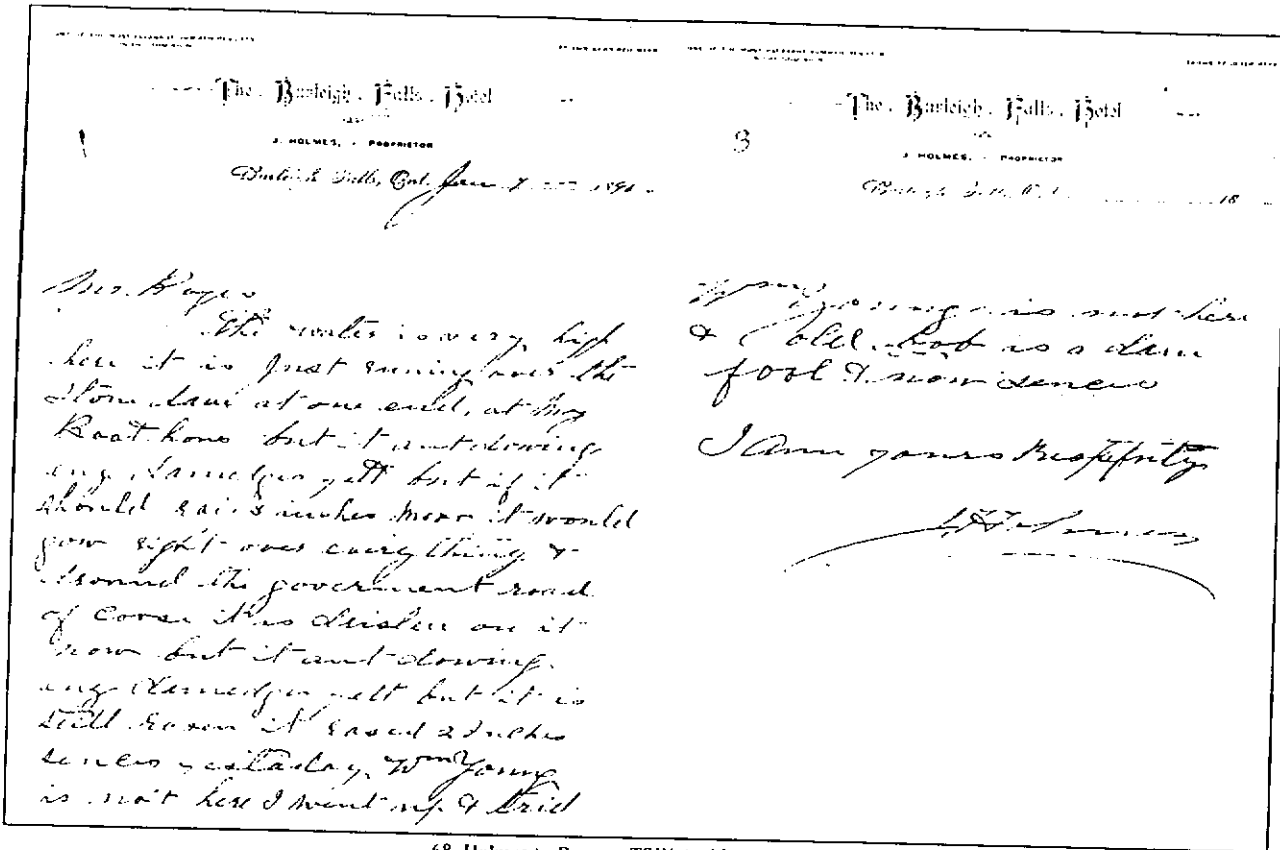 The Burleigh Falls Hotel
J. HOLMES, - PROPRIETOR
Burleigh Falls, Ont. 189
1
Mr. Rogers
The water is very high
here it is Just runing over the
Stone dam at one end, at my
Boat hous but it ant dowing
eny damedges yett but if it
should rais 3 inches more it would
gow right over everything &
around the goverment road
of corse it is on it
now but it ant dowing
eny damedges yett but it is
still rasen it rased 2 Inches
sences yestaday, Wm Young
is not here I went up & tried
The Burleigh Falls Hotel
J. HOLMES, - PROPRIETOR
Burleigh Falls, Ont. 18
3
Wm Young is not here
& old bob is a dam
fool & now sences
I Am yours
J Holmes